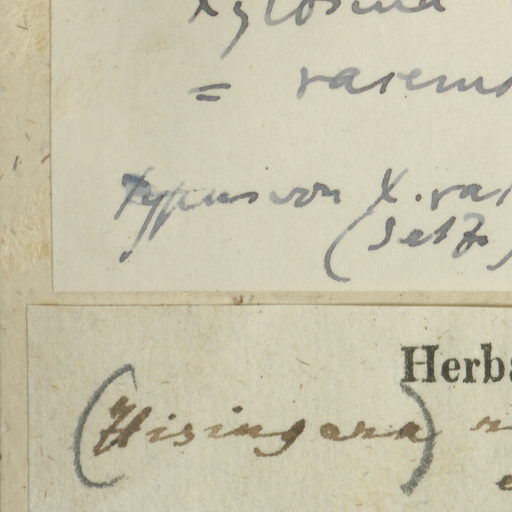 Xylosma
= racemo
Typus von X. rac
(
Herba
(Hisingera) r